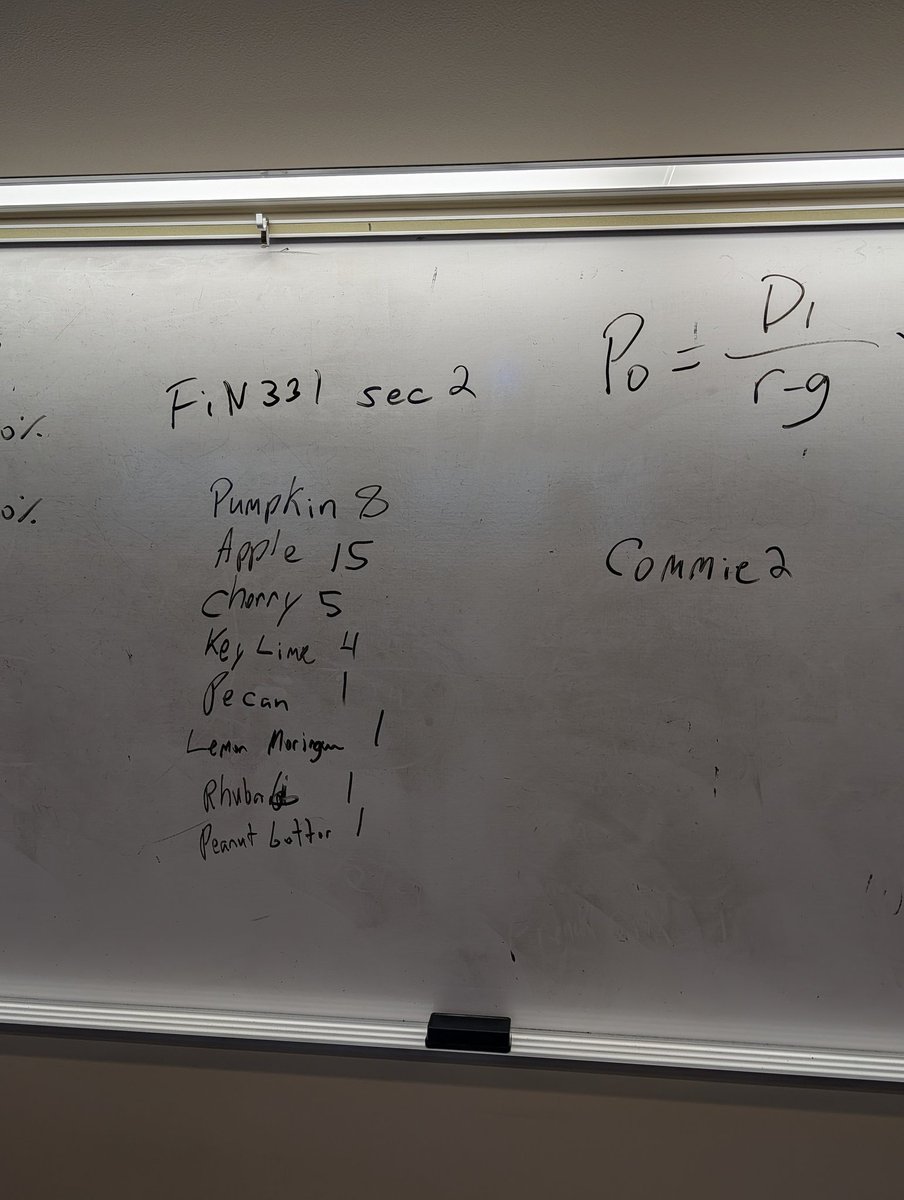 0%
0%
FiN331 sec 2
Pumpkin 8
Apple 15
Cherry 5
Key Lime 4
Pecan 1
Lemon Moringue 1
Rhubarb 1
Peanut butter 1
P0 = D1 / r-g
Commie 2